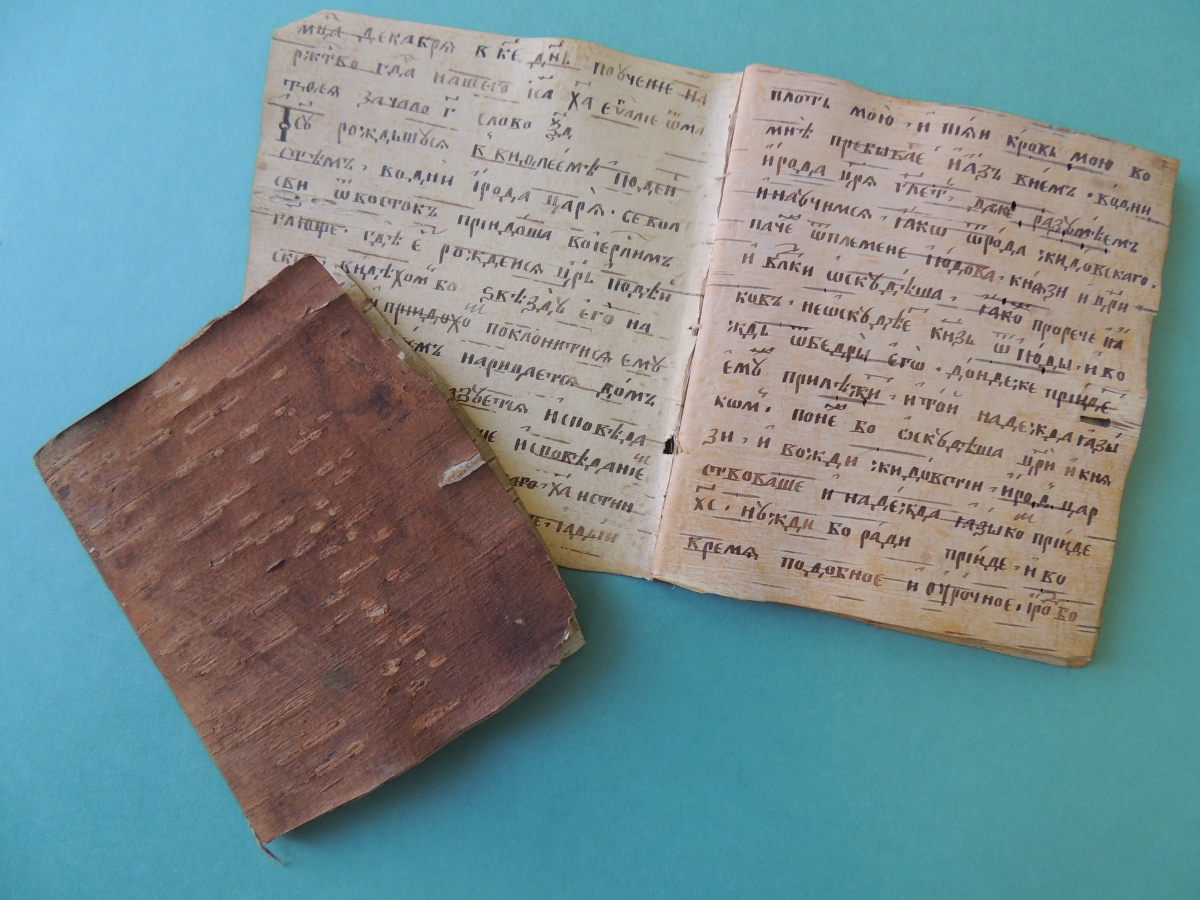 мц҃а декабря в к҃е дн҃ь поучение на
ржтво гд҃а нашего іс҃а х҃а еѵ҃аліе ѿ ма
тѳея зачало г҃ слово
Ісу рождьшуся в виѳлеем ѣ іюдей
стѣмъ, во дни ірода царѧ. се вол
сви ѿ востокъ пріидоша во іерлимъ
гл҃юще. гдѣ е рождеися цр҃ь іюдѣи
видѣхом бо ѕвѣзду его на
и пріидохо поклонитися ему
нарицается домъ
исповѣда
исповѣданіе
х҃а истин
плоть мою, и піяи кровь мою во
мнѣ пребывае и азъ в нем. во дни
ирода цр҃я гл҃ет, даже разумѣемъ
и научимся, ꙗко ѿ рода жидовскаго.
паче ѿ племене іюдова. князи и цр҃и
и вл҃ки ѡскудѣша, ꙗко прорече
ковъ. не ѡскудѣе князь ѿ іюды, и во
ждь ѿ бедръ егѡ. дондеже пріиде
ему прилежи, и той надежда ꙗзы
кѡм. поне бо ѡскудѣша цр҃и и кня
зи, и вожди жидовстіи, ирод цар
ствоваше и надежда ꙗзыко пріиде
х҃с. нужди бо ради пріиде. и во
время подобное и урочное,